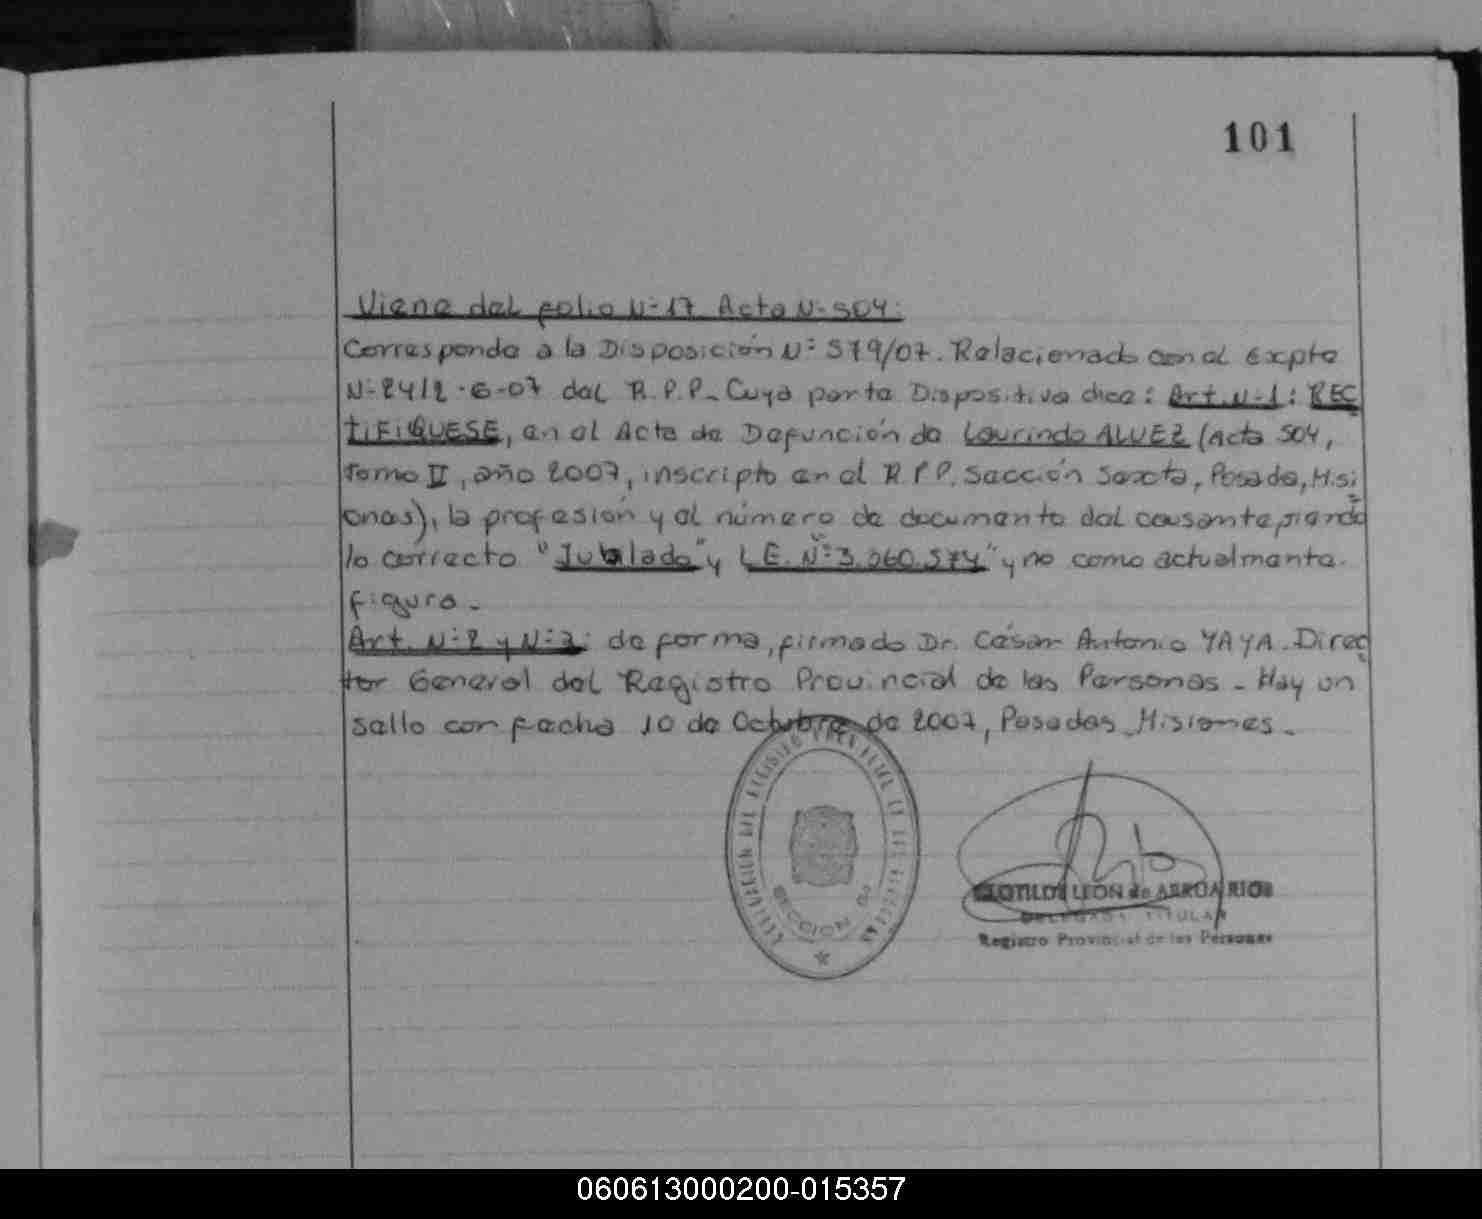 101
Viene del folio N=17 Acta N=504:
Corresponde a la Disposición N= 579/07. Relacionado con el Expte
N=2412-6-07 del R.P.P. Cuya parte Dispositiva dice: Art. N=1: REC
TIFIQUESE, en el Acta de Defunción de Laurindo ALVEZ (Acta 504,
Tomo II, año 2007, inscripto en el R.P.P. Sección Sexta, Posadas, Misi
ones), la profesión y el número de documento del causante, siendo
lo correcto "Jubilado" y L.E. N=3.060.574" y no como actualmente
figura.-
Art. N=2 y N=3: de forma, firmado Dr. César Antonio YAYA. Direc
tor General del Registro Provincial de las Personas - Hay un
sello con fecha 10 de Octubre de 2007, Posadas, Misiones.-
SECCION
CLOTILDE LEON de
DELEGADA TITULAR
Registro Provincial de las Personas
060613000200-015357